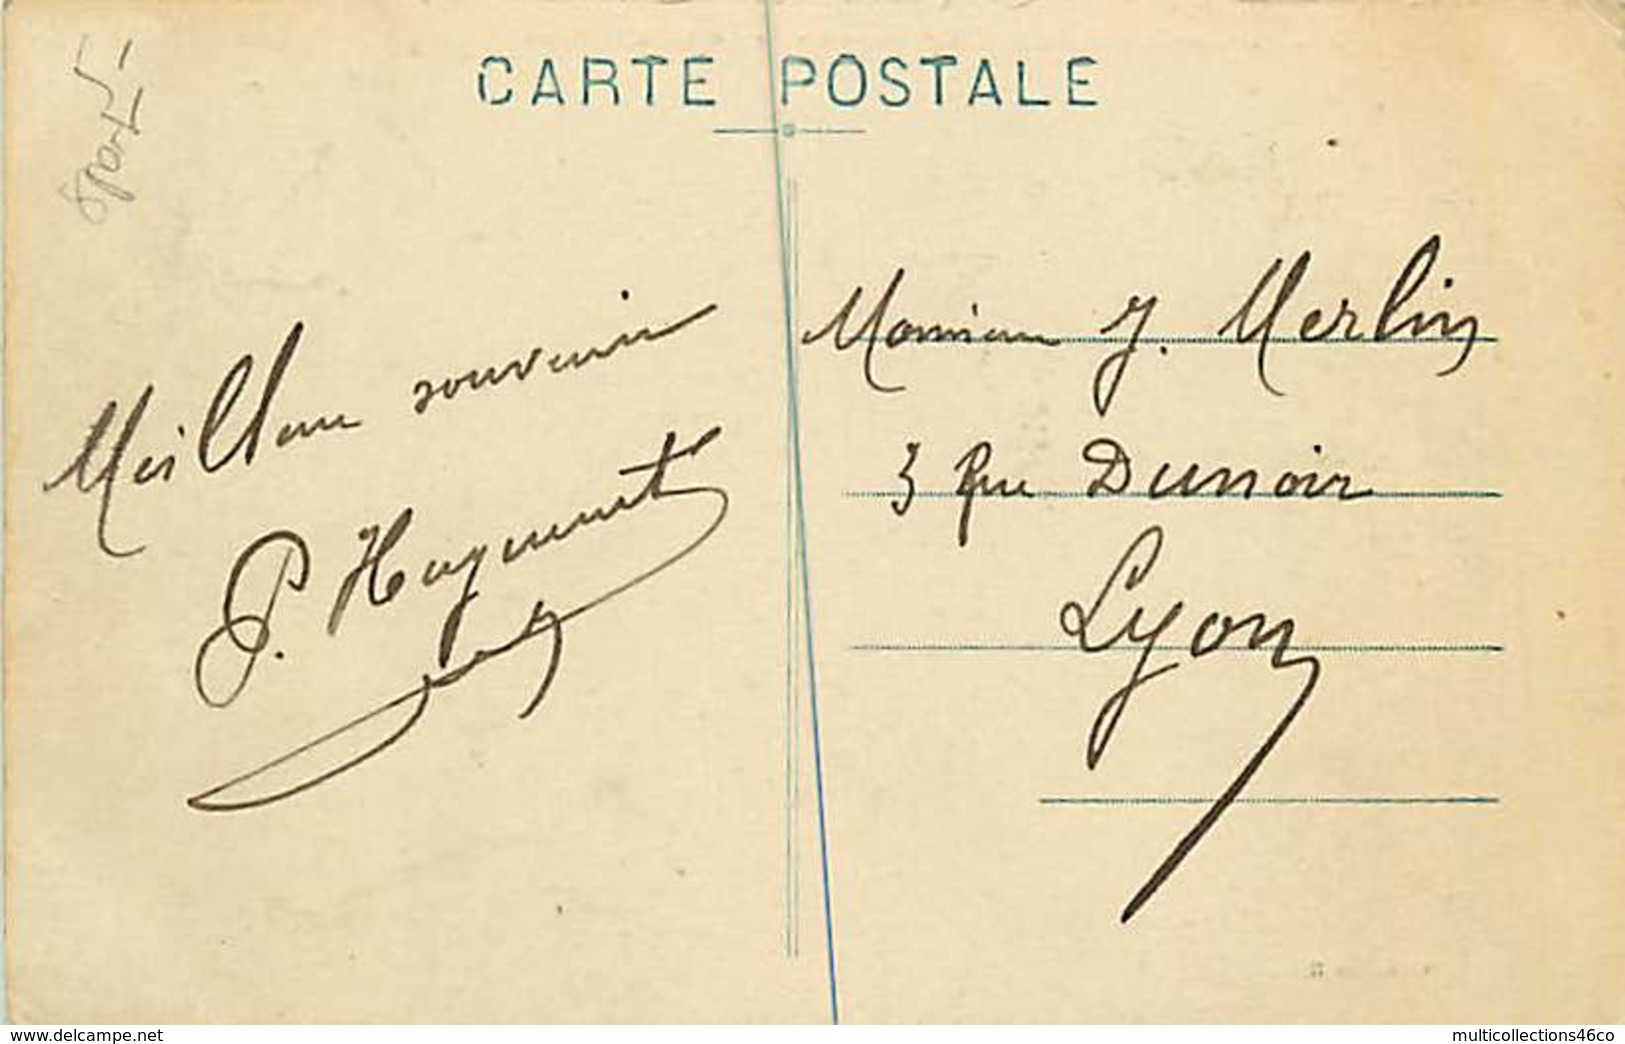 CARTE POSTALE
Sport
5-
Meilleur souvenir
P. Huguenet
Monsieur J. Merlin
3 Rue Dunoir
Lyon
www.delcampe.net
multicollections46co